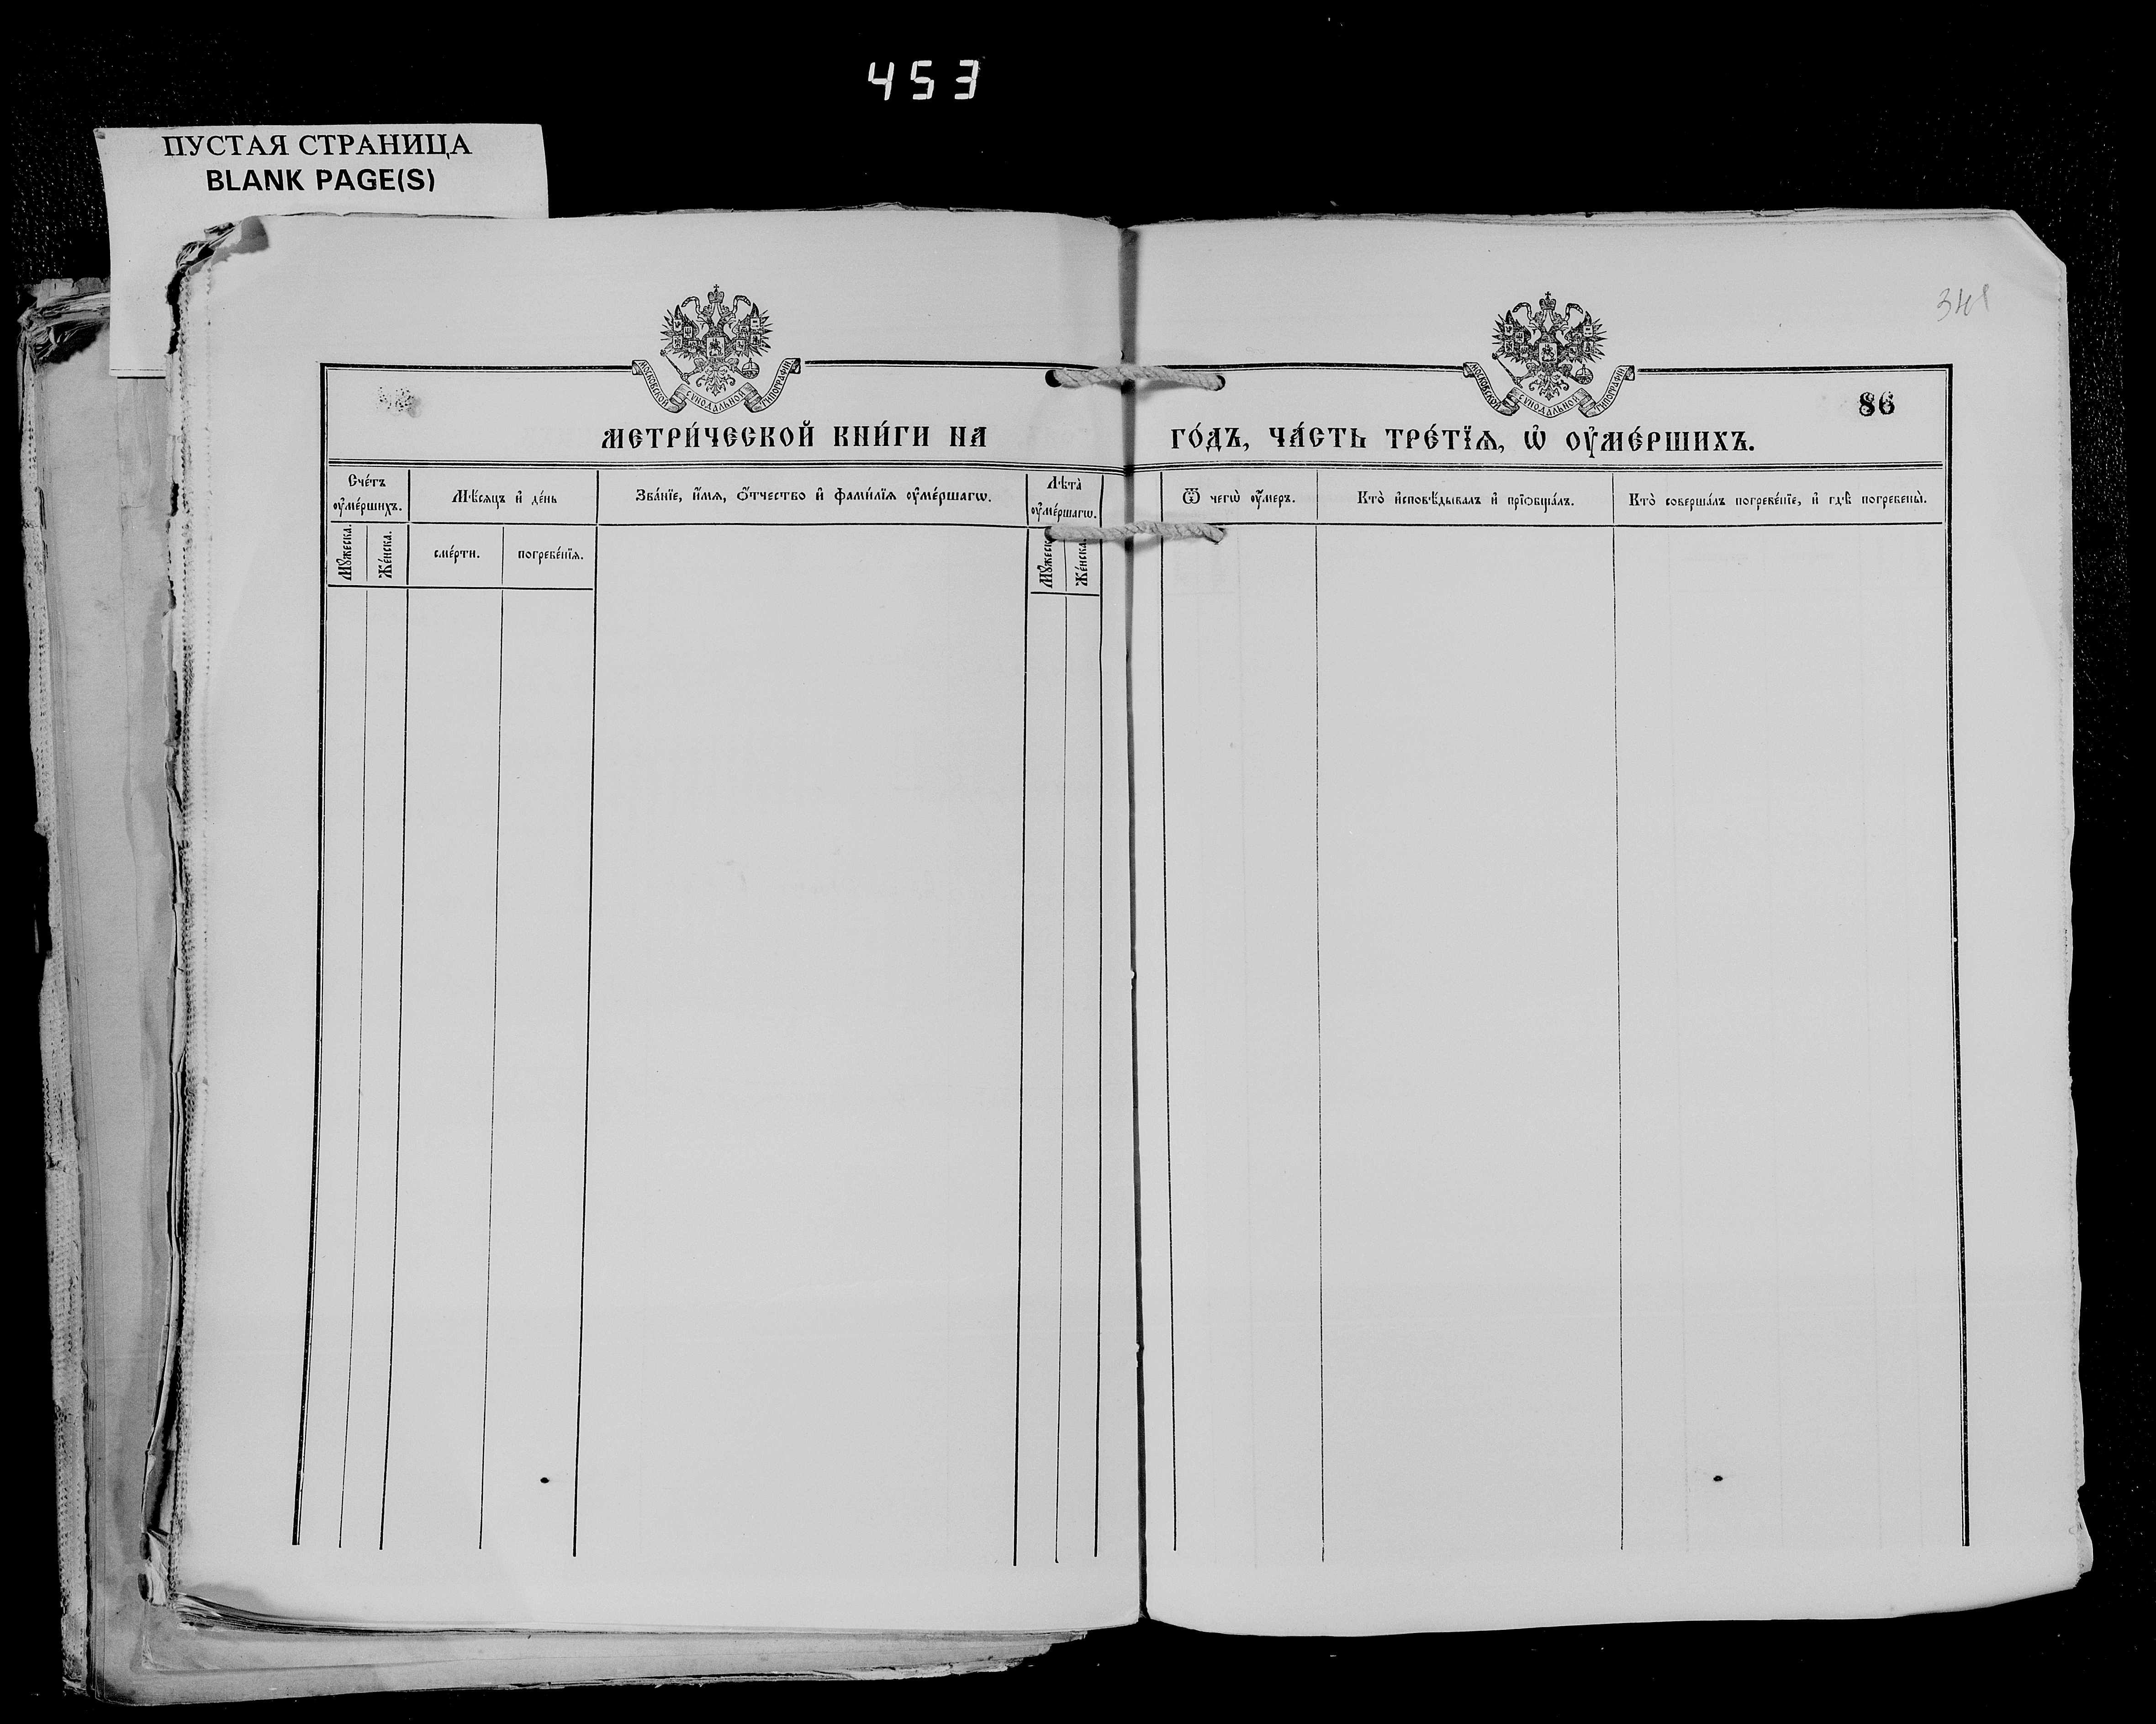 453
ПУСТАЯ СТРАНИЦА
BLANK PAGE(S)
341
МОСКОВСКОЙ СѴНОДАЛЬНОЙ ТИПОГРАФІИ
МОСКОВСКОЙ СѴНОДАЛЬНОЙ ТИПОГРАФІИ
86
МЕТРИ́ЧЕСКОЙ КНИ́ГИ НА ГО́ДЪ, ЧА́СТЬ ТРЕ́ТЇѦ, Ѡ҆ ОУ҆МЕ́РШИХЪ.
Сче́тъ оу҆ме́ршихъ.
Мѣ́сяцъ и҆ де́нь
Зва́нїе, и҆́мѧ, ѻ҆́тчество и҆ фами́лїѧ оу҆ме́ршагѡ.
Лѣта̀ оу҆ме́ршагѡ.
Ѿ чегѡ̀ оу҆́меръ.
Кто̀ и҆сповѣ́дывалъ и҆ прїѡбща́лъ.
Кто̀ соверша́лъ погребе́нїе, и҆ гдѣ̀ погребены̀.
Мꙋ́жеска.
Же́нска.
сме́рти.
погребе́нїѧ.
Мꙋ́жеска.
Же́нска.